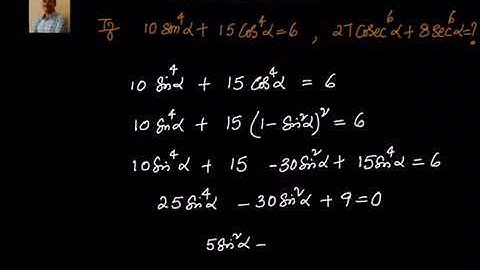 If 10 sin⁴α + 15 cos⁴α = 6 , 27 cosec⁶α + 8 sec⁶α = ?
10 sin⁴α + 15 cos⁴α = 6
10 sin⁴α + 15 (1 - sin²α)² = 6
10 sin⁴α + 15 - 30 sin²α + 15 sin⁴α = 6
25 sin⁴α - 30 sin²α + 9 = 0
5 sin²α -